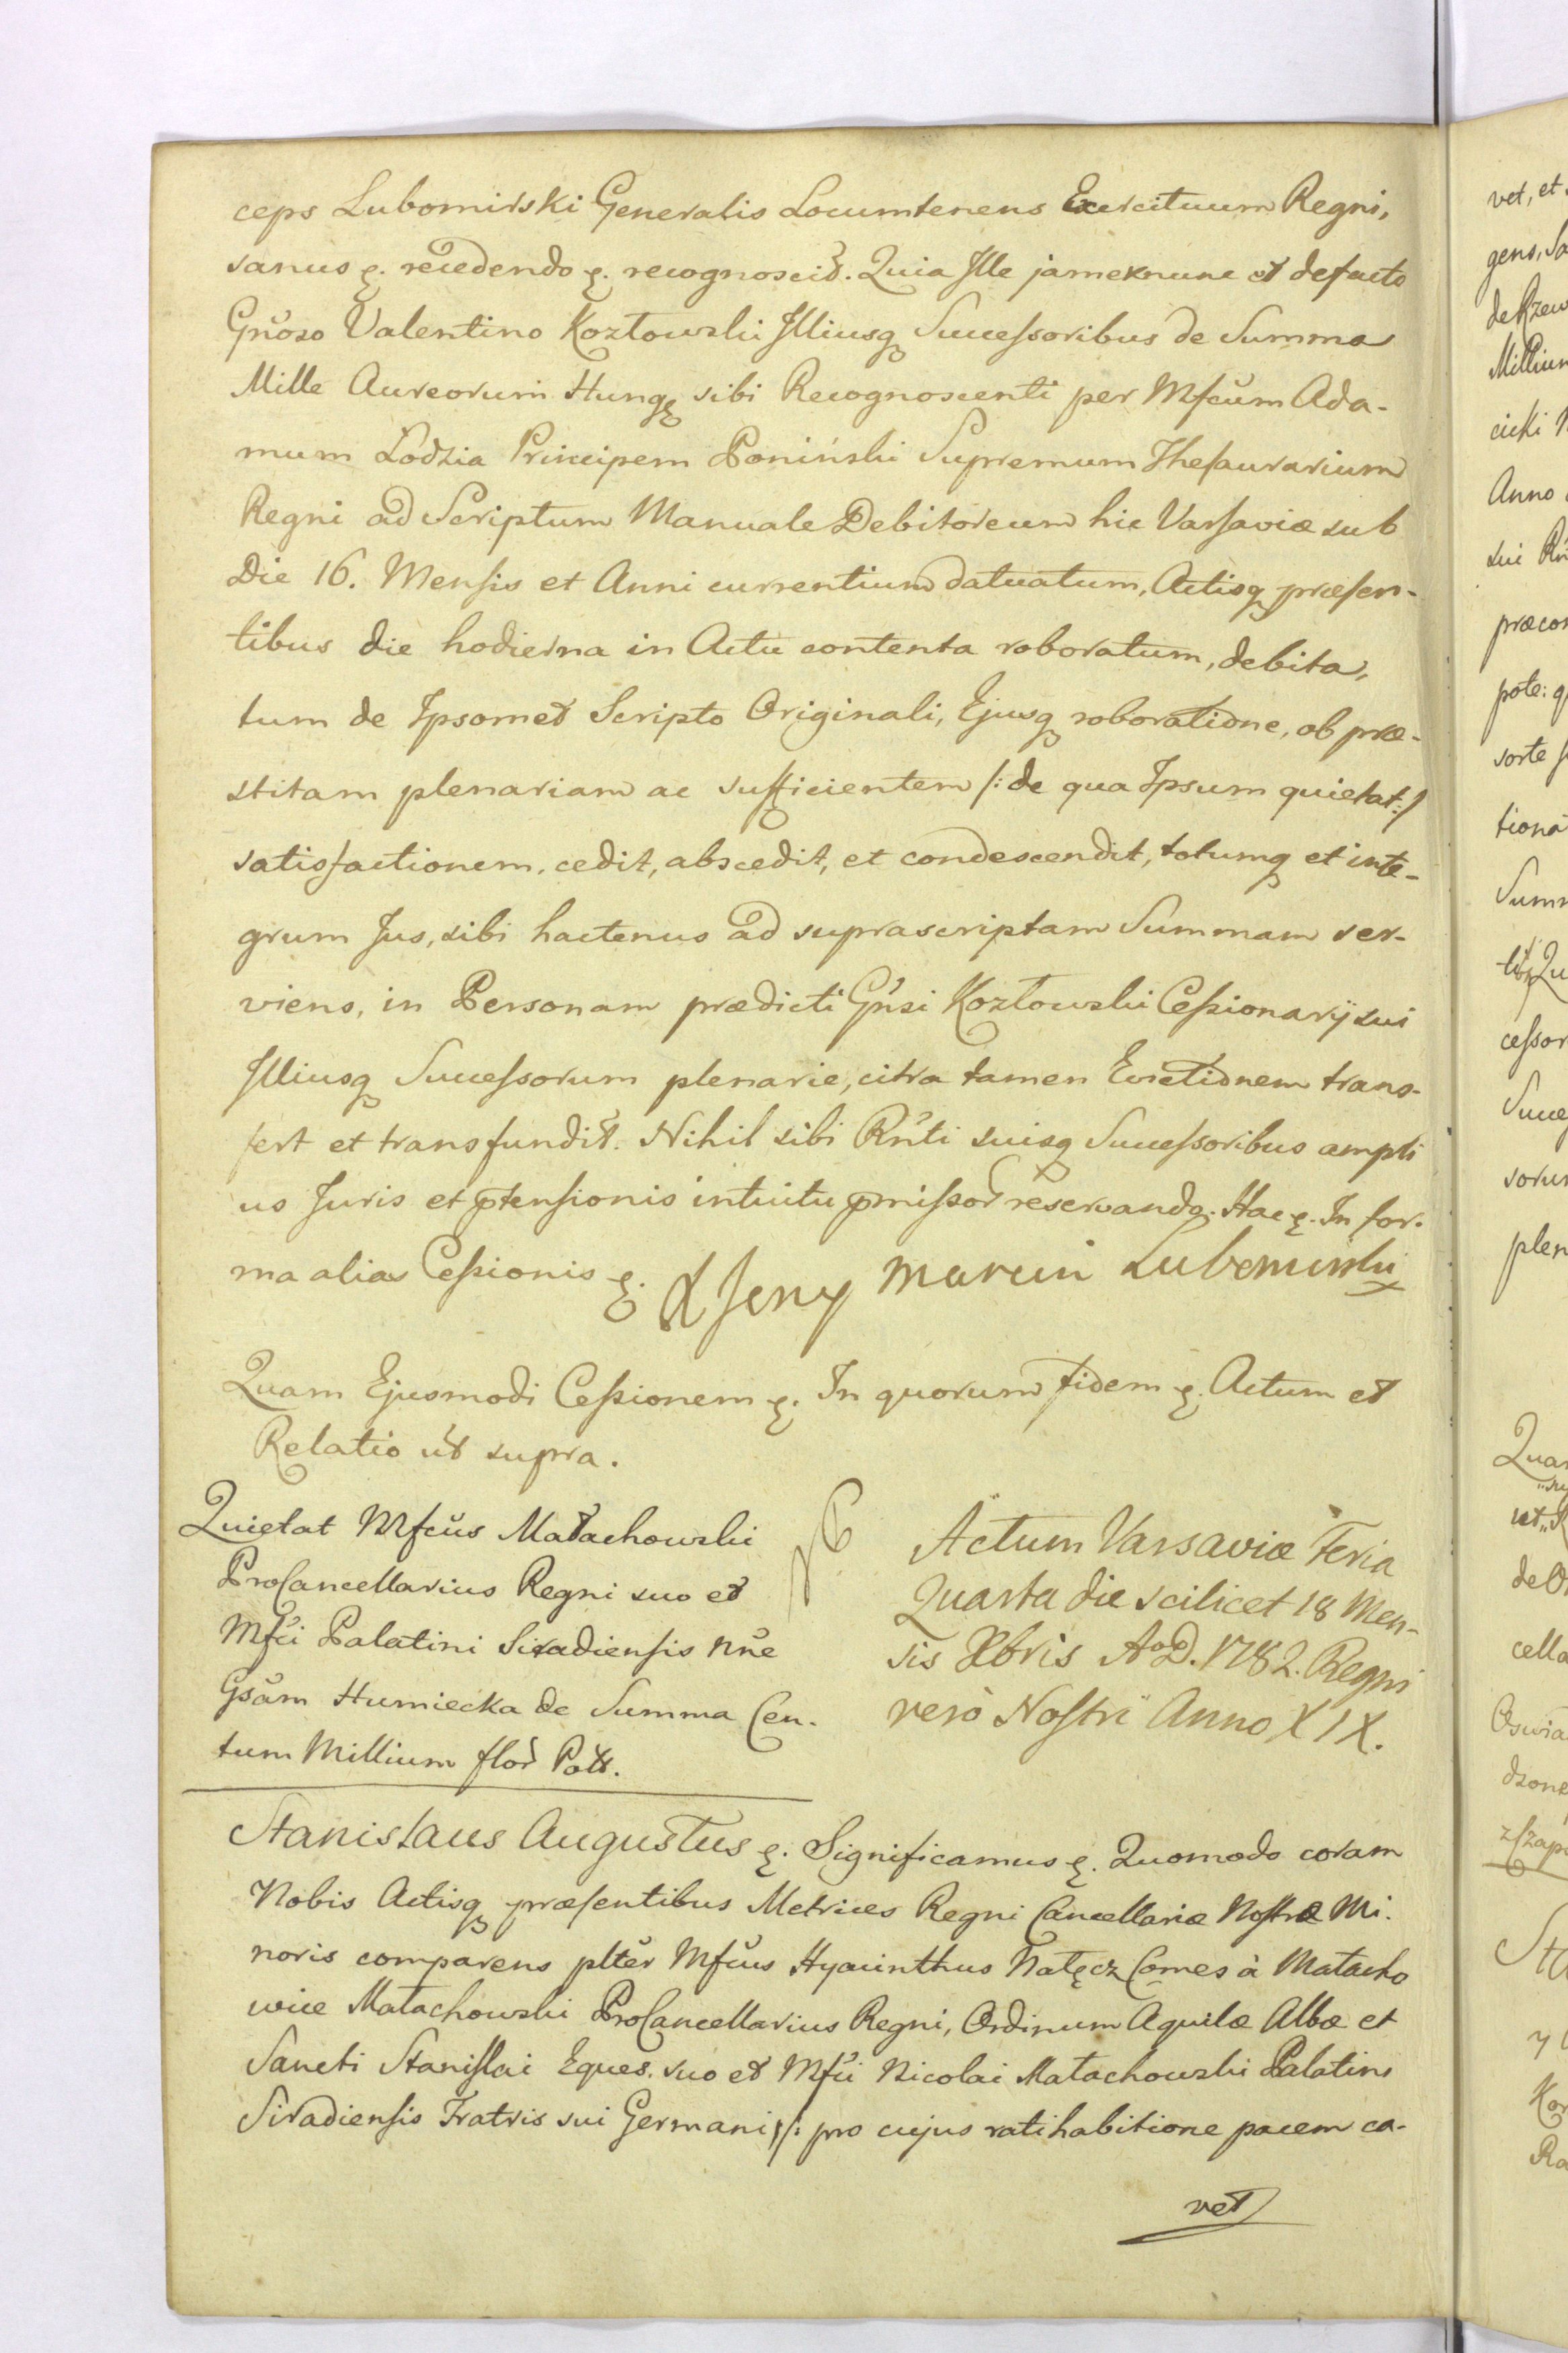 ceps Lubomirski Generalis Locumtenens Exercituum Regni,
sanus &. recedendo &. recognoscit. Quia Ille jam exnunc et defacto
Gnoso Valentino Kozłowski Illiusq Successoribus de Summa
Mille Aureorum Hung sibi Recognoscenti per Mfcum Ada-
mum Lodzia Principem Poniński Supremum Thesaurarium
Regni ad Scriptum Manuale Debitoreum hic Varsaviæ sub
Die 16. Mensis et Anni currentium datuatum, Actisq præsen-
tibus die hodierna in Actu contenta roboratum, debita,
tum de Ipsomet Scripto Originali, Ejusq roboratione, ob præ-
stitam plenariam ac sufficientem /: de qua Ipsum quietat :/
satisfactionem, cedit, abscedit, et condescendit, totumq et inte-
grum Jus, sibi hactenus ad suprascriptam Summam ser-
viens, in Personam prædicti Gnsi Kozłowski Cessionarij sui
Illiusq Successorum plenarie, citra tamen Evictionem trans-
fert et transfundit. Nihil sibi Rnti suisq Successoribus ampli
us Juris et ptensionis intuitu pmissor reservando. Hac &. In for-
ma alias Cessionis &. X Jerzy Marcin Lubomirski
Quam Ejusmodi Cessionem &. In quorum fidem &. Actum et
Relatio ut supra.
Quietat Mfcus Małachowski
ProCancellarius Regni suo et
Mfci Palatini Siradiensis nne
Gsam Humiecka de Summa Cen-
tum Millium flor Pol.
Actum Varsaviæ Feria
Quarta die scilicet 18 Men-
sis Xbris Ao D. 1782. Regni
vero Nostri Anno XIX.
Stanislaus Augustus &. Significamus &. Quomodo coram
Nobis Actisq præsentibus Metrices Regni Cancellariæ Nostræ Mi-
noris comparens plter Mfcus Hyacinthus Nałęcz Comes à Małacho
wice Małachowski ProCancellarius Regni, Ordinum Aquilæ Albæ et
Sancti Stanislai Eques. suo et Mfci Nicolai Małachowski Palatini
Siradiensis Fratris sui Germani /: pro cujus ratihabitione pacem ca-
vet
vet, et
gens, Sa
de Rzew
Millium
cicki
Anno
sui Rn
præcon
pote: q
sorte
tiona
Summ
Qu
cessor
Succe
sorum
plen
Quam
ut
de O
cella
Oswia
dzone
Sta
y
Kor
Ra